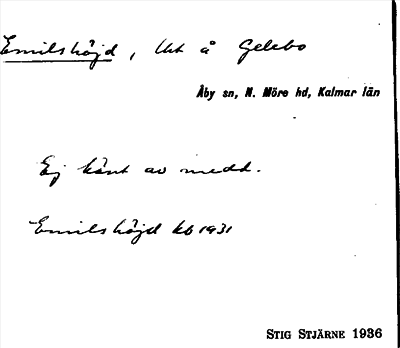 Emilshöjd, Ut å Gelebo
Åby sn, N. Möre hd, Kalmar län
Ej känt av medd.
Emilshöjd kb 1931
STIG STJÄRNE 1936